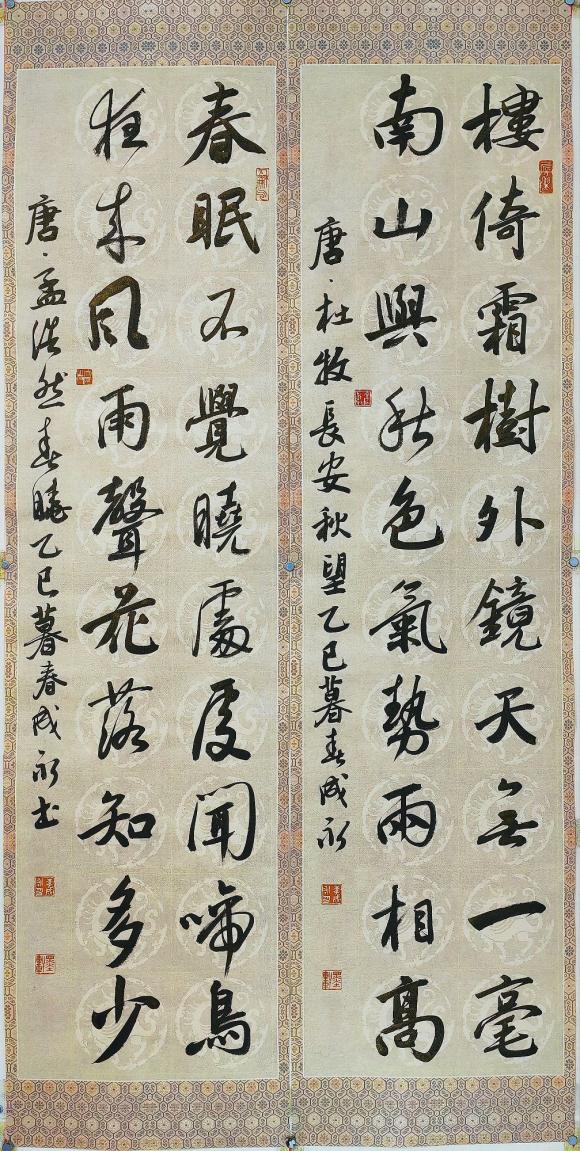 樓倚霜樹外鏡天無一毫
南山與秋色氣勢兩相高
唐·杜牧長安秋望乙巳暮春成永
春眠不覺曉處處聞啼鳥
夜来風雨聲花落知多少
唐·孟浩然春曉乙巳暮春成永书